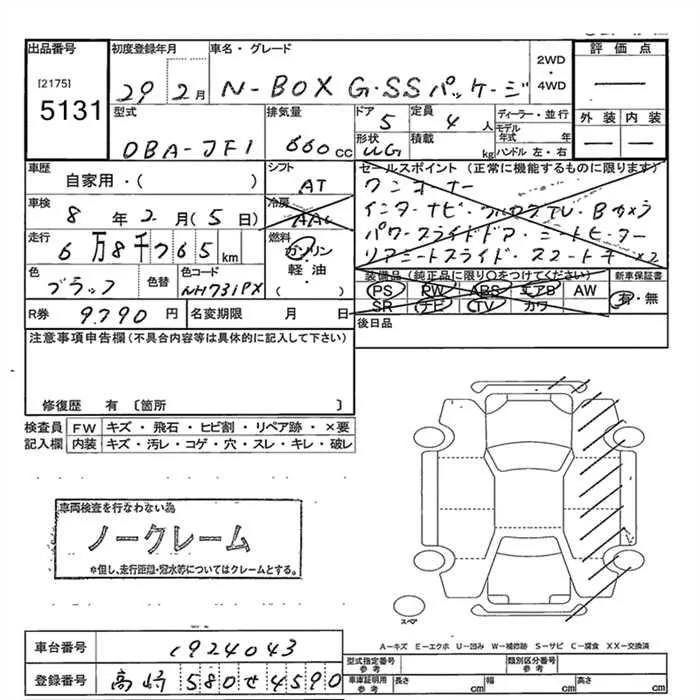 出品番号
[2175]
5131
初度登録年月
29 2月
車名・グレード
N-BOX G・SSパッケージ
2WD
・
4WD
評価点
―
外装 内装
― ―
型式
DBA-JF1
排気量
660cc
ドア
5
定員
4人
ディーラー・並行
モデル年式 年
ハンドル 左・右
形状
WG
積載
kg
車歴
自家用・( )
シフト
AT
セールスポイント (正常に機能するものに限ります)
ワンオーナー
インターナビ・フルセグTV・Bカメラ
パワースライドドア・シートヒーター
リアシートスライド・スマートキー×2
車検
8年2月(5日)
冷房
AAC
走行
6万8千765km
燃料
ガソリン
軽・油
( )
色
ブラック
色替
色コード
NH731PX
装備品(純正品に限り○をつけてください)
新車保証書
PS PW ABS エアB AW
有・無
SR ナビ TV カワ
R券 9790円
名変期限 月 日
後日品
注意事項申告欄(不具合内容等は具体的に記入して下さい)
修復歴 有 〔箇所 〕
検査員 FW キズ・飛石・ヒビ割・リペア跡・×要
記入欄 内装 キズ・汚レ・コゲ・穴・スレ・キレ・破レ
車両検査を行なわない為
ノークレーム
*但し、走行距離・冠水等についてはクレームとする。
スペア
A-キズ E-エクホ U-凹み W-補修跡 S-サビ C-腐食 XX-交換済
車台番号 1924043
登録番号 高崎 580せ4590
型式指定番号
参考
類別区分番号
参考
車庫証明用
参考
長さ cm 幅 cm 高さ cm